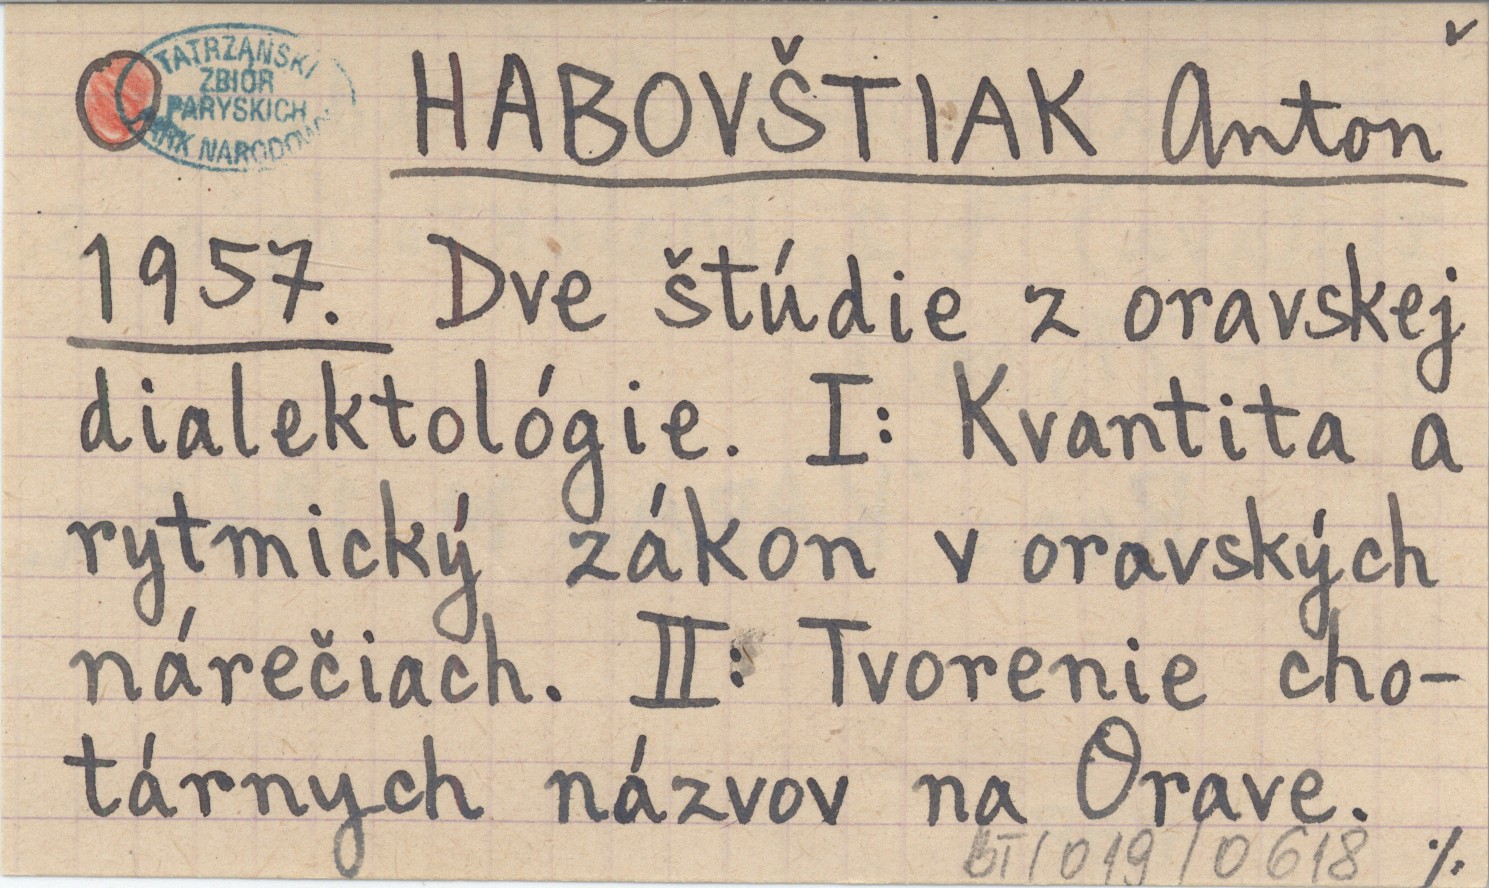 TATRZAŃSKI
ZBIÓR
PARYSKICH
PARK NARODOWY
HABOVŠTIAK Anton
1957. Dve štúdie z oravskej
dialektológie. I: Kvantita a
rytmický zákon v oravských
nárečiach. II: Tvorenie cho-
tárnych názvov na Orave.
BT/019/0618 ./.